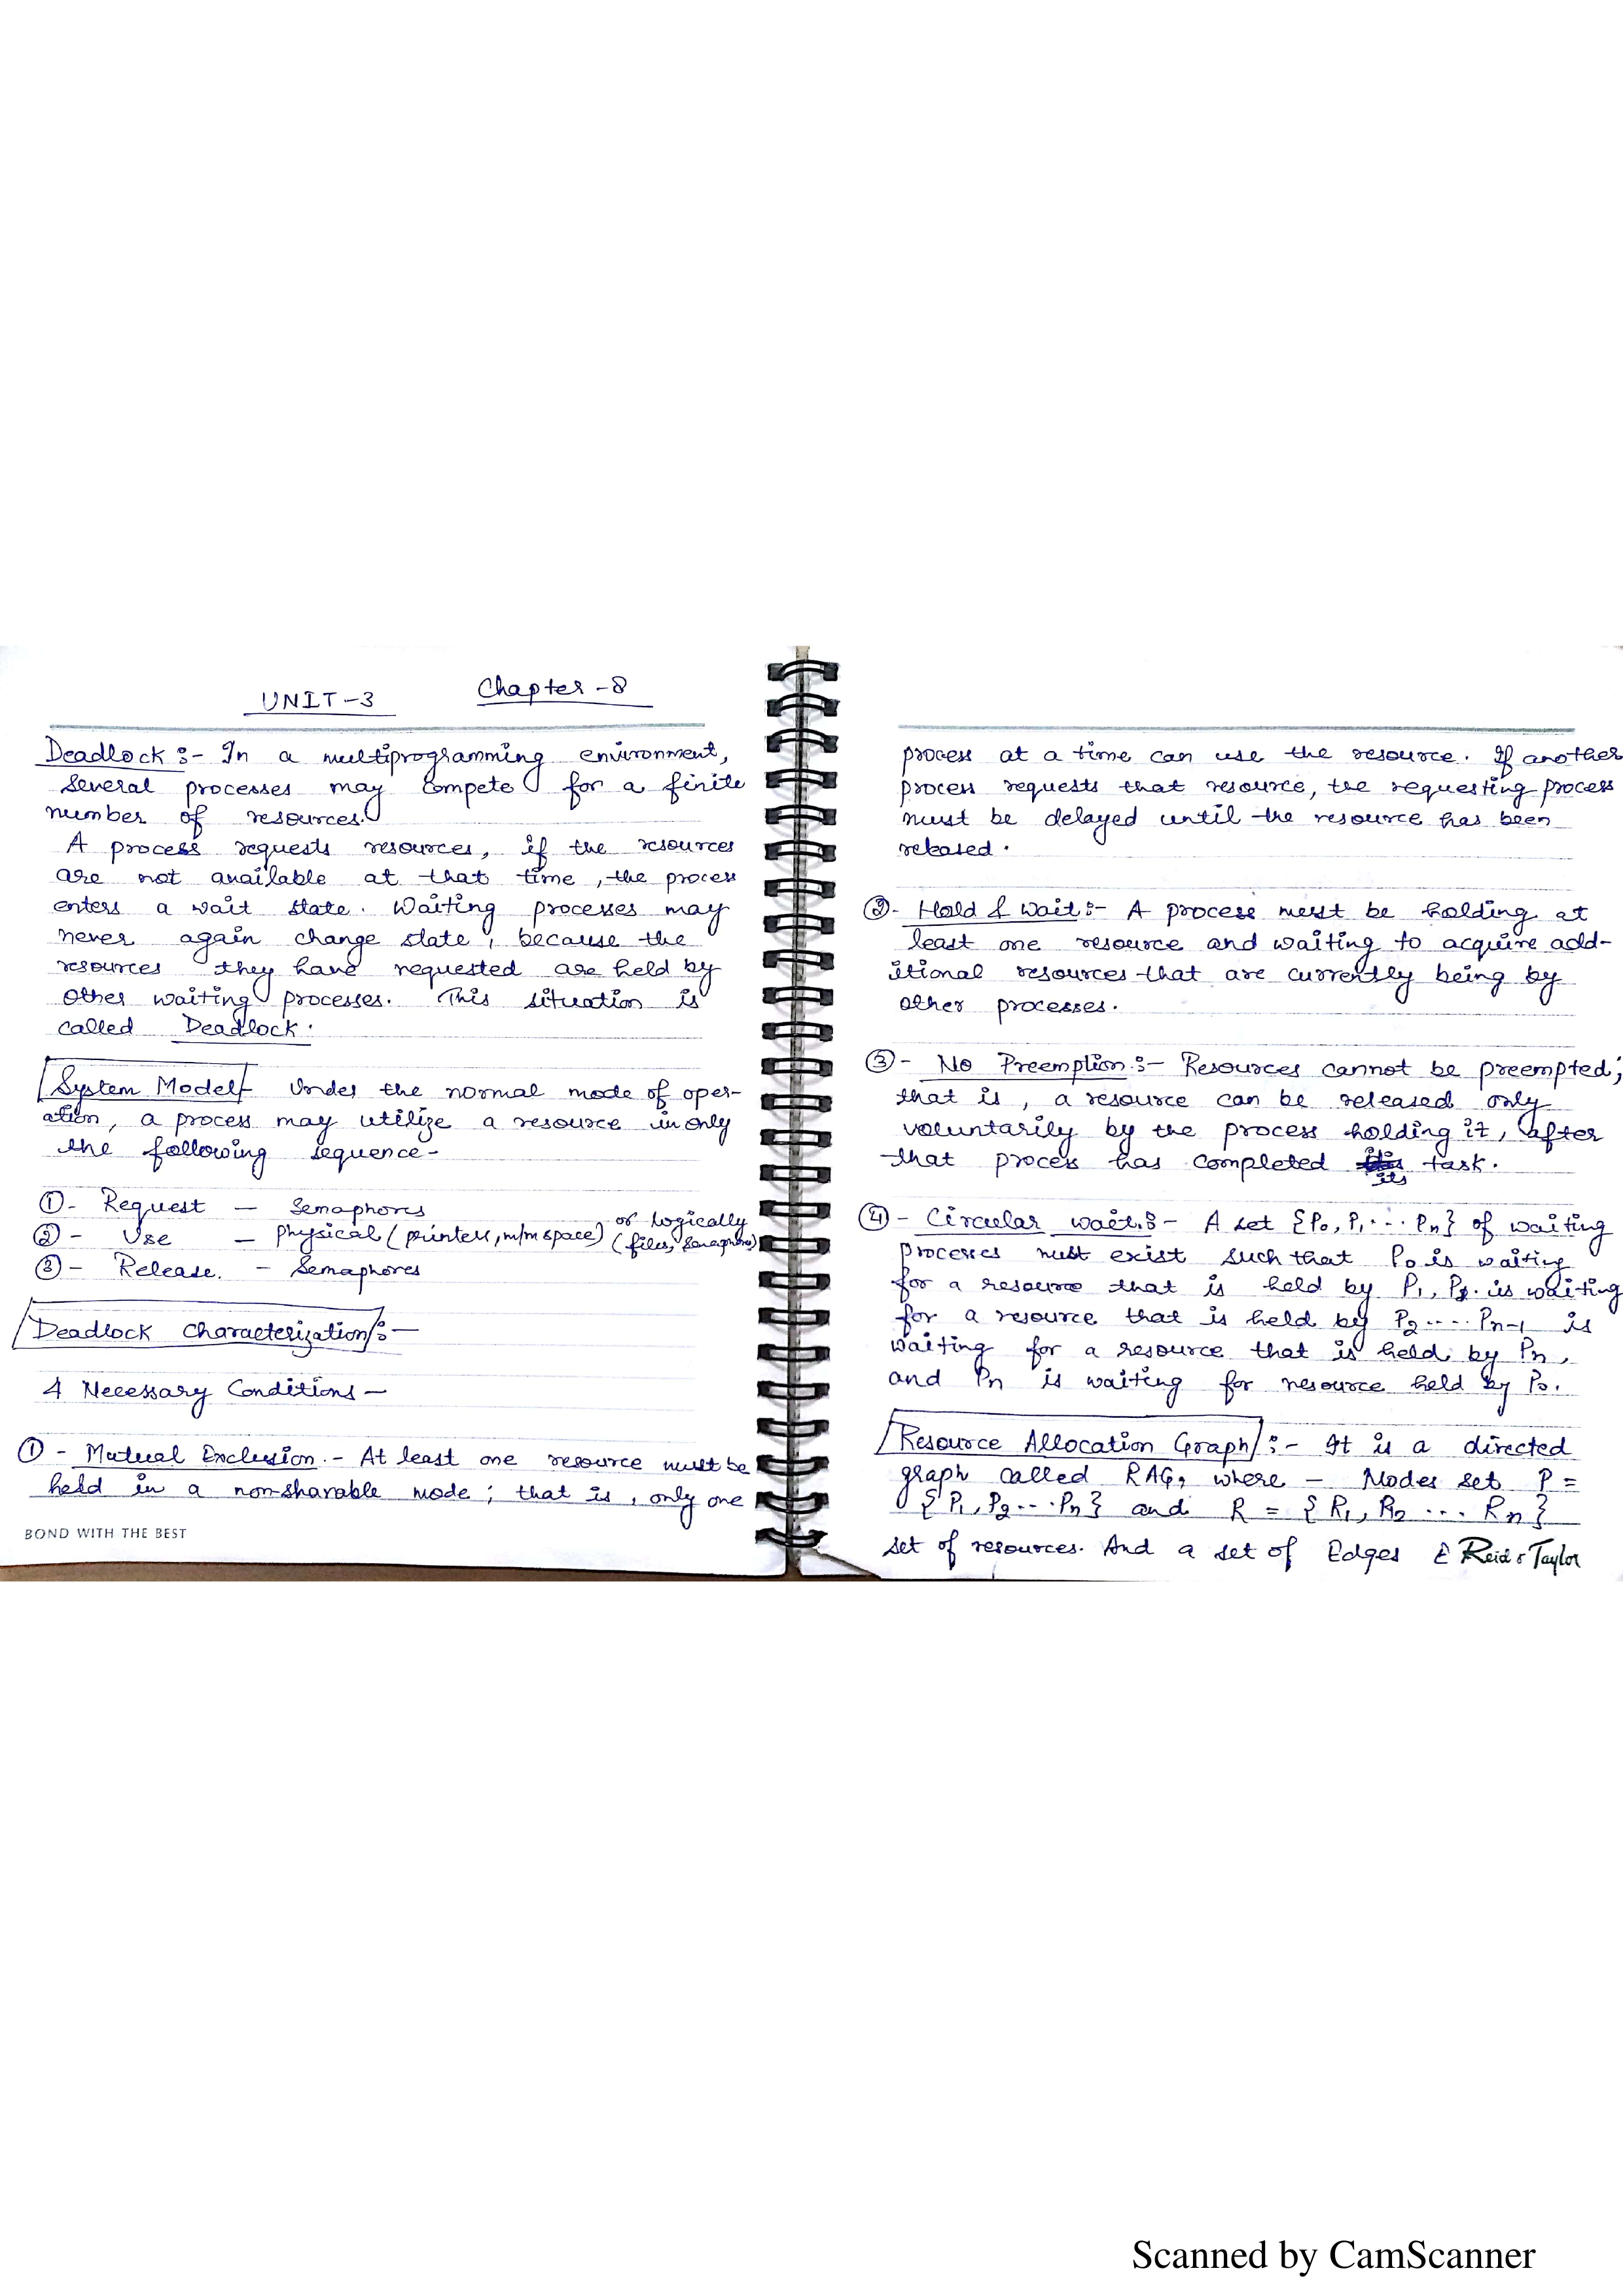 UNIT-3 Chapter-8
Deadlock :- In a multiprogramming environment,
several processes may compete for a finite
number of resources.
A process requests resources, if the resources
are not available at that time, the process
enters a wait state. Waiting processes may
never again change state, because the
resources they have requested are held by
other waiting processes. This situation is
called Deadlock.
System Model- Under the normal mode of oper-
ation, a process may utilize a resource in only
the following sequence-
①- Request - Semaphores
②- Use - Physical (printers, m/m space) or logically (files, semaphores)
③- Release. - Semaphores
Deadlock Characterization :-
4 Necessary Conditions -
① - Mutual Exclusion. - At least one resource must be
held in a non-sharable mode; that is, only one
BOND WITH THE BEST
process at a time can use the resource. If another
process requests that resource, the requesting process
must be delayed until the resource has been
released.
②- Hold & wait :- A process must be holding at
least one resource and waiting to acquire add-
itional resources that are currently being by
other processes.
③- No Preemption :- Resources cannot be preempted;
that is, a resource can be released only
voluntarily by the process holding it, after
that process has completed its task.
④- Circular wait :- A set {P0, P1 ... Pn} of waiting
processes must exist such that P0 is waiting
for a resource that is held by P1, P1 is waiting
for a resource that is held by P2 .... Pn-1 is
waiting for a resource that is held by Pn,
and Pn is waiting for resource held by P0.
Resource Allocation Graph :- It is a directed
graph called RAG, where - Nodes set P =
{P1, P2 ... Pn} and R = {R1, R2 ... Rn}
set of resources. And a set of Edges E
Reid & Taylor
Scanned by CamScanner